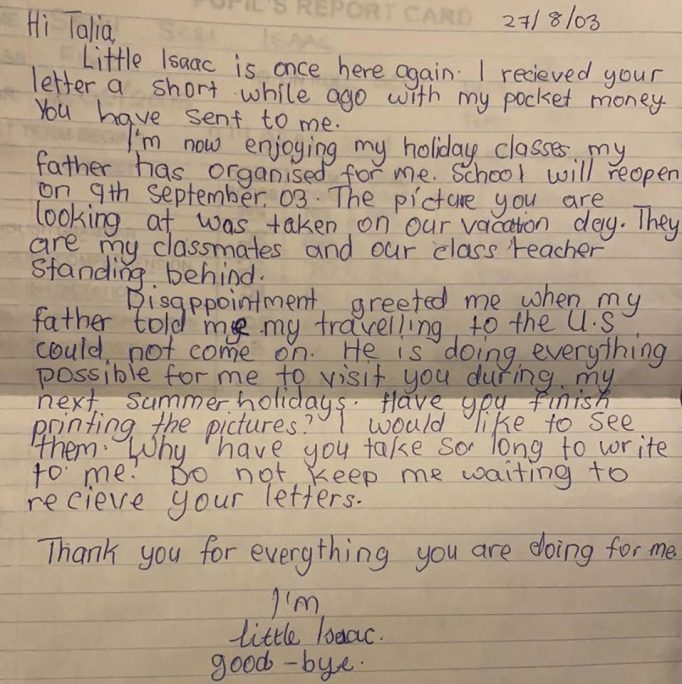 PUPIL'S REPORT CARD
27/8/03
Hi Talia,
Little Isaac is once here again. I recieved your
letter a short while ago with my pocket money
You have sent to me.
I'm now enjoying my holiday classes my
father has organised for me. School will reopen
on 9th September, 03. The picture you are
looking at was taken on our vacation day. They
are my classmates and our class teacher
standing behind.
Disappointment greeted me when my
father told me my travelling to the U.S
could not come on. He is doing everything
possible for me to visit you during my
next summer holidays. Have you finish
printing the pictures? I would like to see
them. Why have you take so long to write
to me? Do not keep me waiting to
recieve your letters.
Thank you for everything you are doing for me.
I'm
little Isaac.
good-bye.